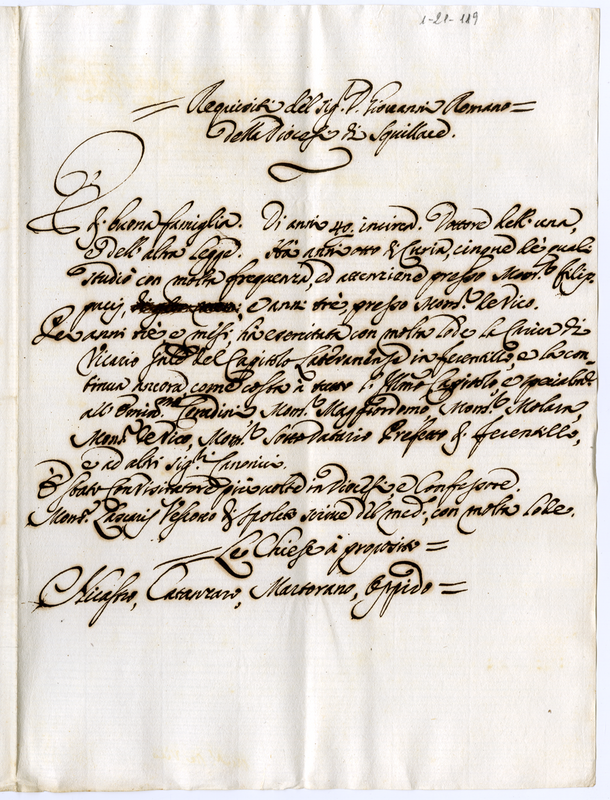 1-21-119
Requisiti del Sig.r D. Giovanni Romano =
della Diocesi di Squillace.
È di buona famiglia. Di anni 40 incirca. Dottore dell'una,
e dell'altra Legge. Hà anni otto di Curia, cinque de quali
studiò con molta frequenza, ed attenzione presso Mons.r Filip-
pucij, e anni trè, presso Mons.r de Vico.
Per anni trè e mesi, hà esercitata con molta lode la Carica di
Vicario Gnle del Capitolo Lateranense in ferentillo, e la con-
tinua ancora come costa à tutto l'Illmo Capitolo, e
all' Mons.r Maggiordomo, Mons.r Molara,
Mons.r de Vico, Mons.r Sotto Datario Prefetto di ferentillo,
e ad altri Sig.ri Canonici.
È stato Convisitatore più volte in Diocesi, e Confessore.
Mons.r Lascaris Vescovo di Spoleto scrive del med.o, con molta lode.
= Le Chiese à proposito =
Nicastro, Catanzaro, Martorano, Oppido =